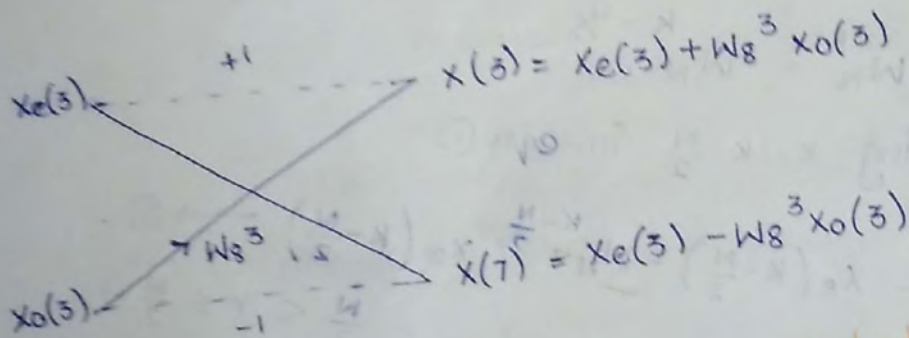 +1
Xe(3) X(3) = Xe(3) + W8^3 Xo(3)
W8^3
X(7) = Xe(3) - W8^3 Xo(3)
Xo(3)
-1